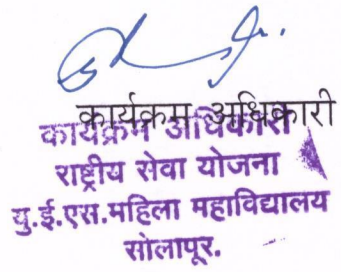 कार्यक्रम अधिकारी
कार्यक्रम अधिकारी
राष्ट्रीय सेवा योजना
यु.ई.एस.महिला महाविद्यालय
सोलापूर.